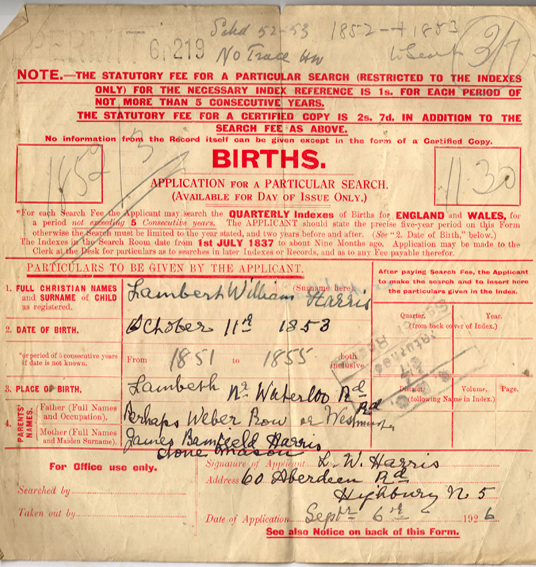 PERMIT 6,219 52-53 1852-1853
No Trace
NOTE.—THE STATUTORY FEE FOR A PARTICULAR SEARCH (RESTRICTED TO THE INDEXES
ONLY) FOR THE NECESSARY INDEX REFERENCE IS 1s. FOR EACH PERIOD OF
NOT MORE THAN 5 CONSECUTIVE YEARS.
THE STATUTORY FEE FOR A CERTIFIED COPY IS 2s. 7d. IN ADDITION TO THE
SEARCH FEE AS ABOVE.
No information from the Record itself can be given except in the form of a Certified Copy.
BIRTHS.
1852
11.30
APPLICATION FOR A PARTICULAR SEARCH.
(AVAILABLE FOR DAY OF ISSUE ONLY.)
*For each Search Fee the Applicant may search the QUARTERLY Indexes of Births for ENGLAND and WALES, for
a period not exceeding 5 Consecutive years. The APPLICANT should state the precise five-year period on this Form
otherwise the Search must be limited to the year stated, and two years before and after. (See "2. Date of Birth," below.)
The Indexes in the Search Room date from 1st JULY 1837 to about Nine Months ago. Application may be made to the
Clerk at the Desk for particulars as to searches in later Indexes or Records, and as to any Fee payable therefor.
PARTICULARS TO BE GIVEN BY THE APPLICANT.
After paying Search Fee, the Applicant
to make the search and to insert here
the particulars given in the Index.
1. FULL CHRISTIAN NAMES
and SURNAME OF CHILD
as registered.
Lambert William
(Surname here)
Harris
Quarter.
Year.
(From back cover of Index).
2. DATE OF BIRTH.
October 11th 1853
*or period of 5 consecutive years
if date is not known.
From 1851 to 1855 both
inclusive.
3. PLACE OF BIRTH.
Lambeth Nr Waterloo Rd
District.
Volume.
Page.
(following Name in Index).
4. PARENTS' NAMES.
Father (Full Names
and Occupation).
Perhaps Weber Row or Westminster Rd
Mother (Full Names
and Maiden Surname).
James Bamfield Harris
Stone Mason
For Office use only.
Searched by
Taken out by
Signature of Applicant L. W. Harris
Address 60 Aberdeen Rd
Highbury N 5
Date of Application Septr 6th 1926
See also Notice on back of this Form.